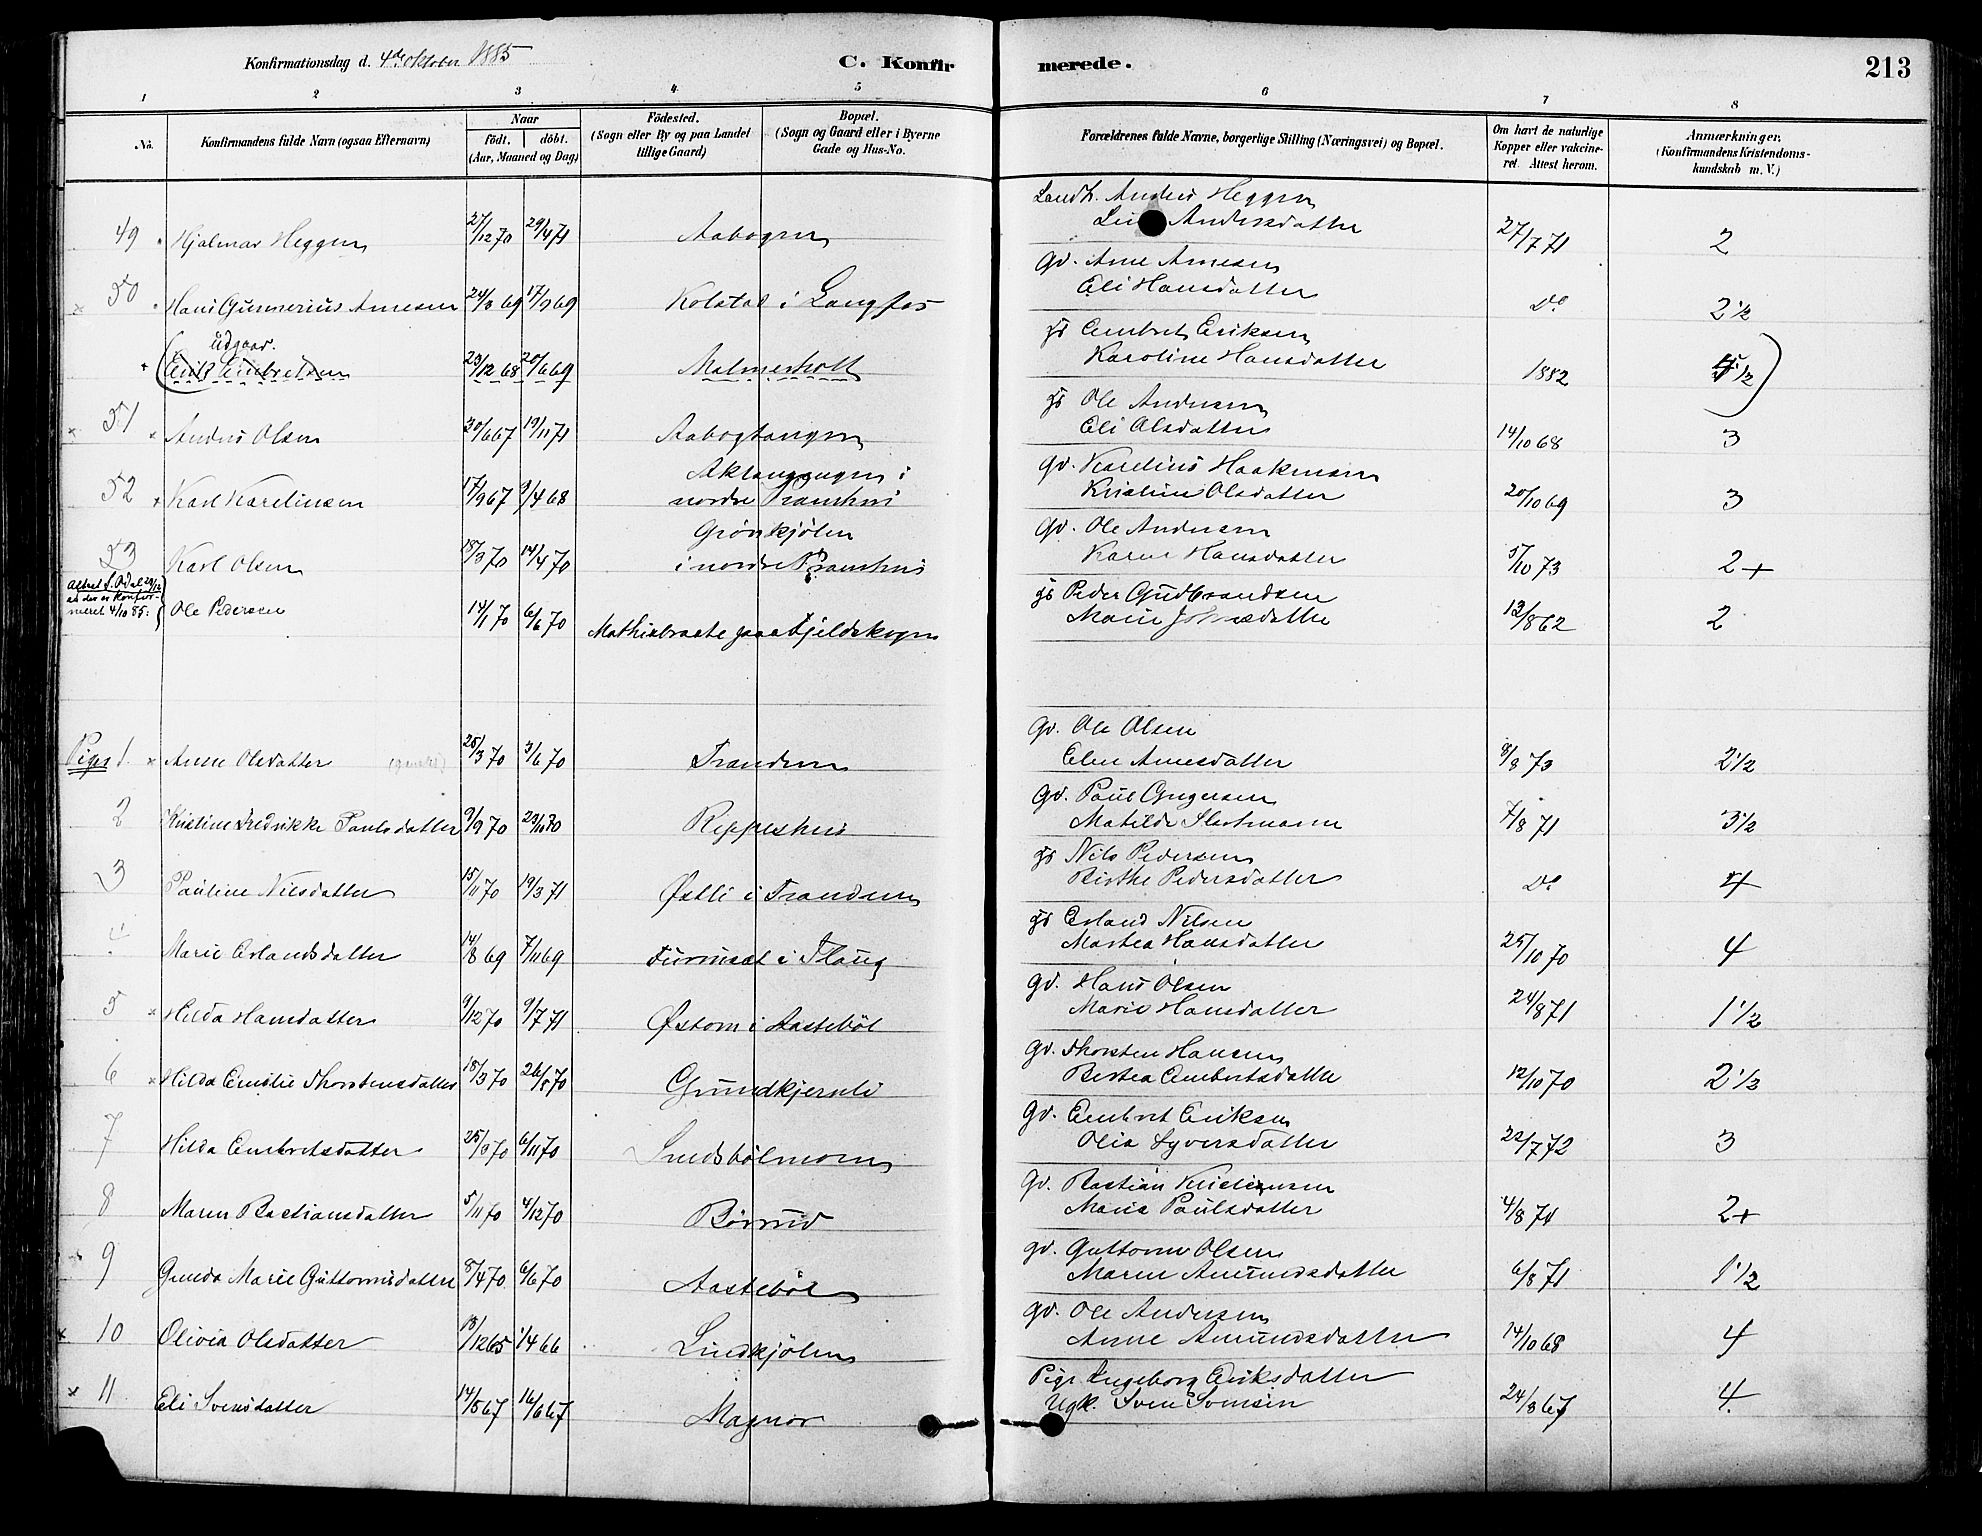 Konfirmationsdag d. 4de Oktober 1885
C. Konfir
merede.
213
1 2 3 4 5 6 7 8
No.
Konfirmandens fulde Navn (ogsaa Efternavn)
Naar
födt. döbt.
(Aar, Maaned og Dag)
Födested.
(Sogn eller By og paa Landet
tillige Gaard)
Bopæl.
(Sogn og Gaard eller i Byerne
Gade og Hus-No.
Forældrenes fulde Navne, borgerlige Stilling (Næringsvei) og Bopæl.
Om havt de naturlige
Kopper eller vakcine-
ret. Attest herom.
Anmærkninger,
(Konfirmandens Kristendoms-
kundskab m. V.)
Landh. Anders Heggen
49 Hjalmar Heggen 27/12 70 29/4 71 Aabogen Andersdatter 27/7 71 2
gv. Arne Arnesen
50 Hans Gunnerius Arnesen 24/8 69 17/9 69 Kolstad i Langfos Eli Hansdatter Do 2 1/2
Udgaar.
gs Embret Eriksen
(Erik Embretsen 29/12 68 20/6 69 Malmerholt Karoline Hansdatter 1882 1/2)
gs Ole Andersen
51 Anders Olsen 30/6 67 19/11 71 Aabogtangen Eli Olsdatter 14/10 68 3
gv. Karelius Haakensen
52 Karl Kareliusen 17/9 67 9/4 68 i nordre Kristine Olsdatter 20/10 69 3
gv. Ole Andersen
53 Karl Olsen 18/3 70 14/4 70 Grönkjölen i nordre Karen Hansdatter 5/10 73 2+
Attest S. Odal 29/12
at der er Konfir-
meret 4/10 85:
gs Peder Gudbrandsen
Ole Pedersen 14/1 70 6/6 70 Mathisbraate paa Fjeldskogen Marie 13/8 62 2
gv. Ole Olsen
Piger 1. Anne Olsdatter 25/3 70 3/6 70 Trandem Elen Arnesdatter 8/8 73 2 1/2
gv. Paul
2 Kristine Fredrikke Paulsdatter 9/9 70 23/10 70 Reppeshus Matilde 7/8 71 3 1/2
gs Nils Pedersen
3 Pauline Nilsdatter 15/11 70 19/3 71 Østli i Trandem Birthe Pedersdatter Do 4
gs Erland Nilsen
4 Marie Erlandsdatter 14/8 69 7/11 69 Furuset i Flaug Martea Hansdatter 25/10 70 4
gv. Hans Olsen
5 Hilda Hansdatter 9/12 70 9/7 71 Østom i Aastebøl Marie Hansdatter 24/8 71 1 1/2
gv. Thorsten Hansen
6 Hilda Emilie Thorstensdatter 18/3 70 26/5 70 Grundkjernli Bertea Embretsdatter 12/10 70 2 1/2
gv. Embret Eriksen
7 Hilda Embretsdatter 25/9 70 6/11 70 Olia Syversdatter 22/7 72 3
gv. Bastian Kristiansen
8 Maren Bastiansdatter 5/11 70 4/12 70 Børrud Maria Paulsdatter 4/8 71 2+
gv. Guttorm Olsen
9 Gunda Marie Guttormsdatter 8/4 70 6/6 70 Aastebøl Maren Amundsdatter 6/8 71 1 1/2
gv. Ole Andersen
10 Olivia Olsdatter 18/12 65 1/4 66 Lindkjølen Anne Amundsdatter 14/10 68 4
Pige Ingeborg Eriksdatter
11 Eli Svensdatter 14/5 67 16/6 67 Magnor Ugk. Sven Svensen 24/8 67 4.